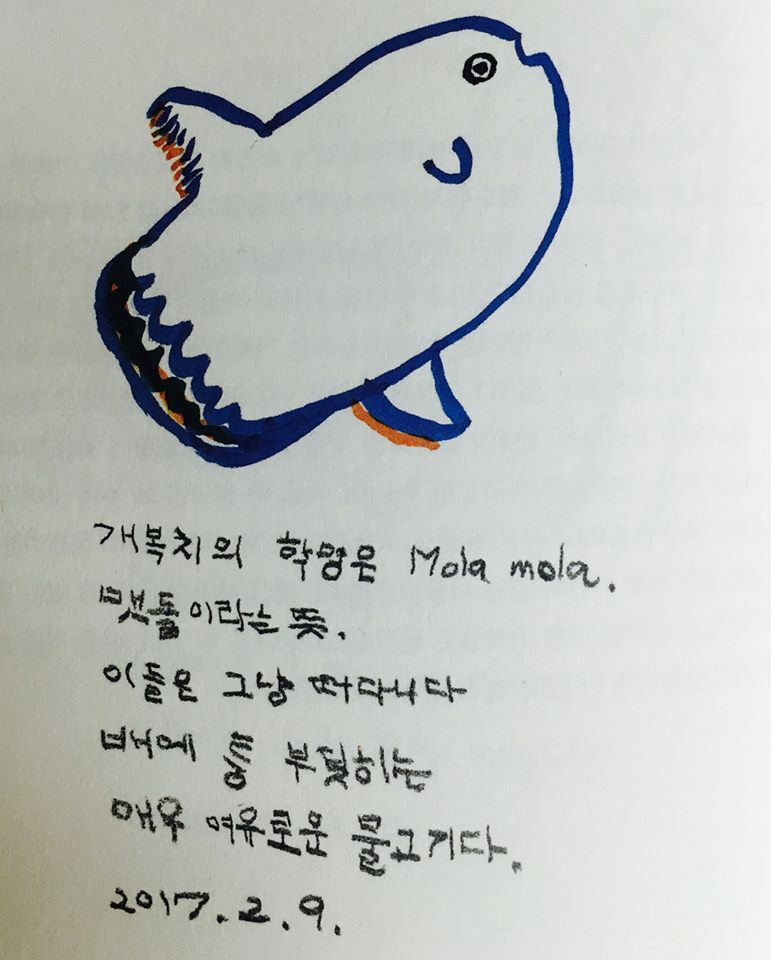 개복치의 학명은 Mola mola.
맷돌이라는 뜻.
이들은 그냥 떠다니다
배에 퉁 부딪히는
매우 여유로운 물고기다.
2017.2.9.